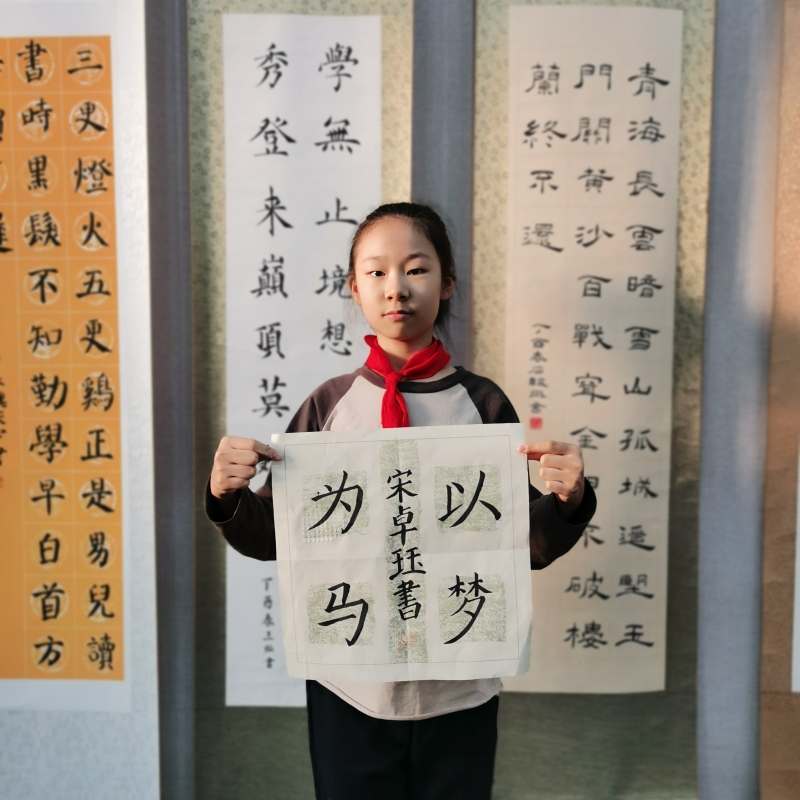 以梦
宋卓珏書
为马
青海長雲暗雪山孤城遥朢玉
門關黄沙百戰穿金甲不破樓
蘭終不還
學無止境想
秀登来巔頂莫
三更燈火五更鷄正是男兒讀
書時黑髮不知勤學早白首方